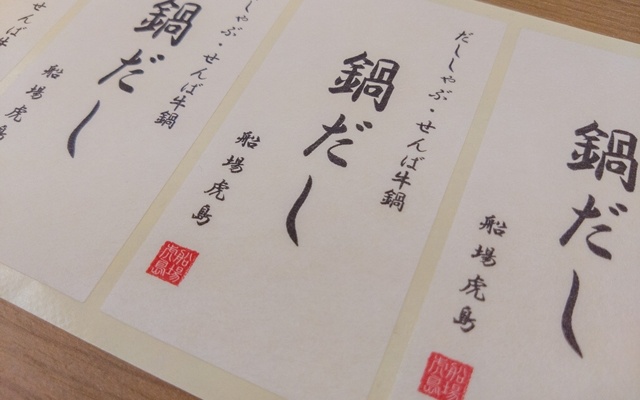 だししゃぶ・せんば牛鍋
鍋だし
船場虎島
船場
虎島
だししゃぶ・せんば牛鍋
鍋だし
船場虎島
船場
虎島
しゃぶ・せんば牛鍋
鍋だし
船場虎島
せんば牛